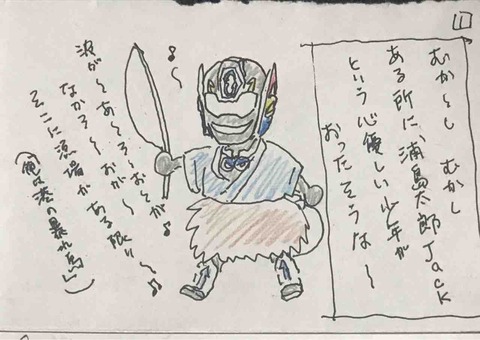 1
むか〜し むかし
ある所に、浦島太郎Jack
という心優しい少年が
おったそうな〜
♪〜
波が〜あ〜ろ〜おとが♪
なかろ〜おが〜
そこに漁場がある限り〜♪
(俺は港の暴れ馬)